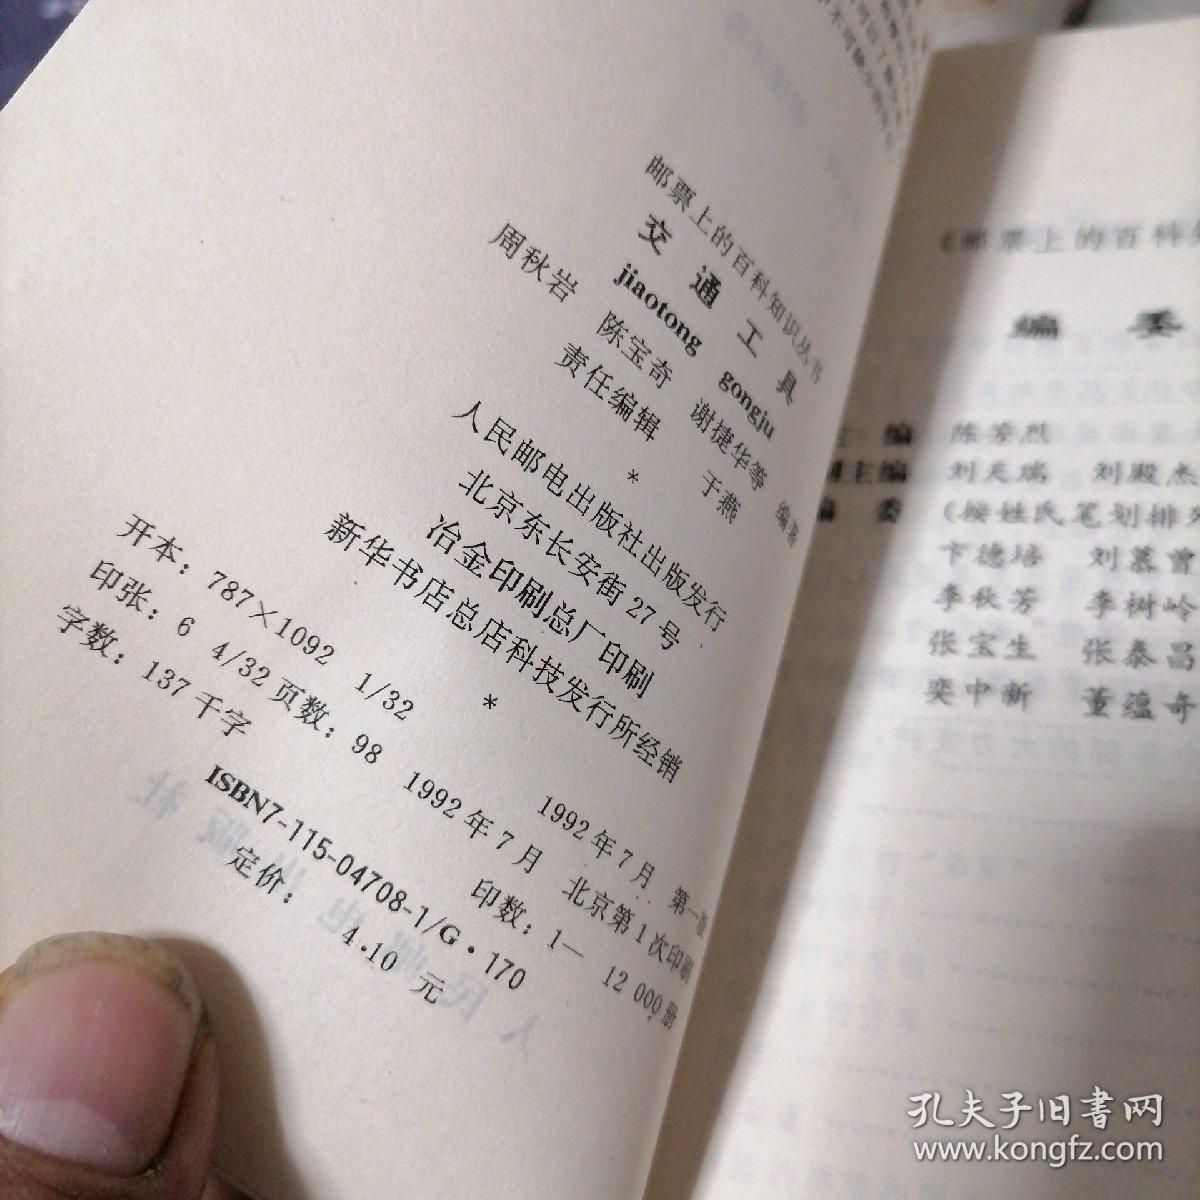 邮票上的百科知识丛书
交通工具
jiaotong gongju
周秋岩 陈宝奇 谢捷华等 编著
责任编辑 于燕
*
人民邮电出版社出版发行
北京东长安街27号
冶金印刷总厂印刷
新华书店总店科技发行所经销
*
开本：787×1092 1/32 1992年7月 第一版
印张：6 4/32页数：98 1992年7月 北京第1次印刷
字数：137千字 印数：1—12 000册
ISBN7-115-04708-1/G·170
定价：4.10元
《邮票上的百科
编 委
主编 陈芳烈
副主编 刘天瑞 刘殿杰
编委 (按姓氏笔划排列
卞德培 刘墓曾
李秋芳 李树岭
张宝生 张泰昌
奕中新 董蕴奇
孔夫子旧书网
www.kongfz.com